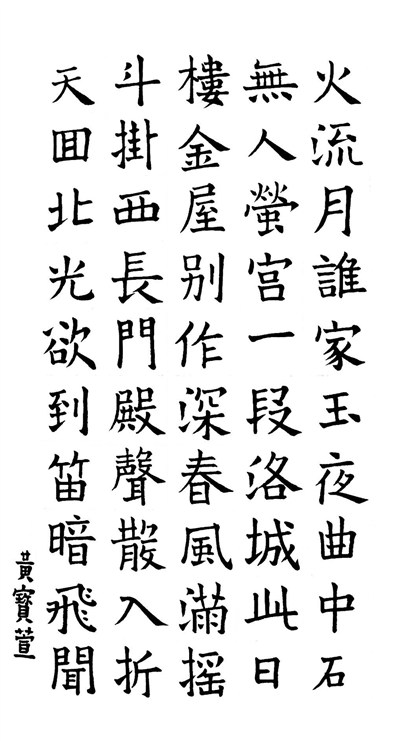 火流月誰家玉夜曲中石
無人螢宫一段洛城此日
樓金屋别作深春風滿摇
斗掛西長門殿聲散入折
天囬北光欲到笛暗飛聞
黃寶萱